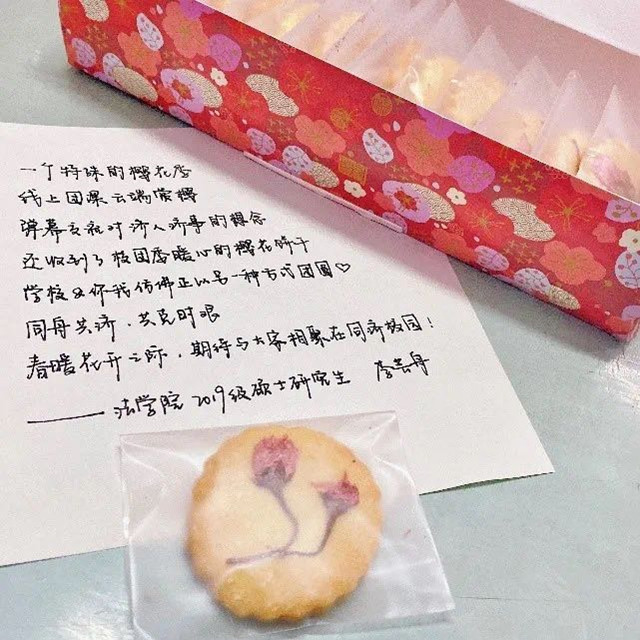 一个特殊的樱花季
线上团聚云端赏樱
弹幕云表对济人济事的想念
还收到了校园季暖心的樱花饼干
学校及你我仿佛正以另一种方式团圆♡
同舟共济，共克时艰
春暖花开之际，期待与大家相聚在同济校园！
——法学院 2019级硕士研究生 李芸舟